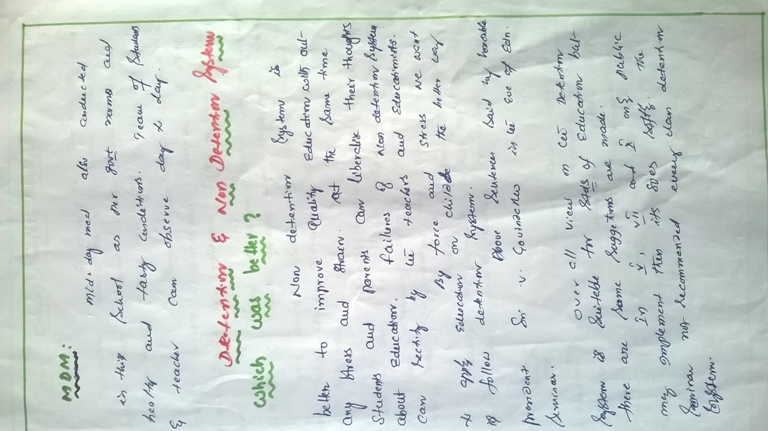 MDM:
Mid-day med also conducted
in this School as per govt norms and
healty and tasty conditions. Team of Students
& teacher can observe day to day.
Detention & Non Detention System
which was better?
Non detention System is
better to improve Quality Education with out-
any stress and strain. At the same time
Students and parents can liberalise their thoughts
about Education. failures of Non detention System
can rectify by teachers and Educationists.
By force and stress we want
to apply Education on childs the better way
is follow detention System.
Above Sentences Said by honable
president Sri. V. Goundeswo in Eve of Edn.
Seminar.
Over all view on Detention
System is Suitable for of Education but-
there are Some Suggestions are made.
In V, VII and X only public
may emplement then its goes softly. The
Seminar not recommended every class detention
System.